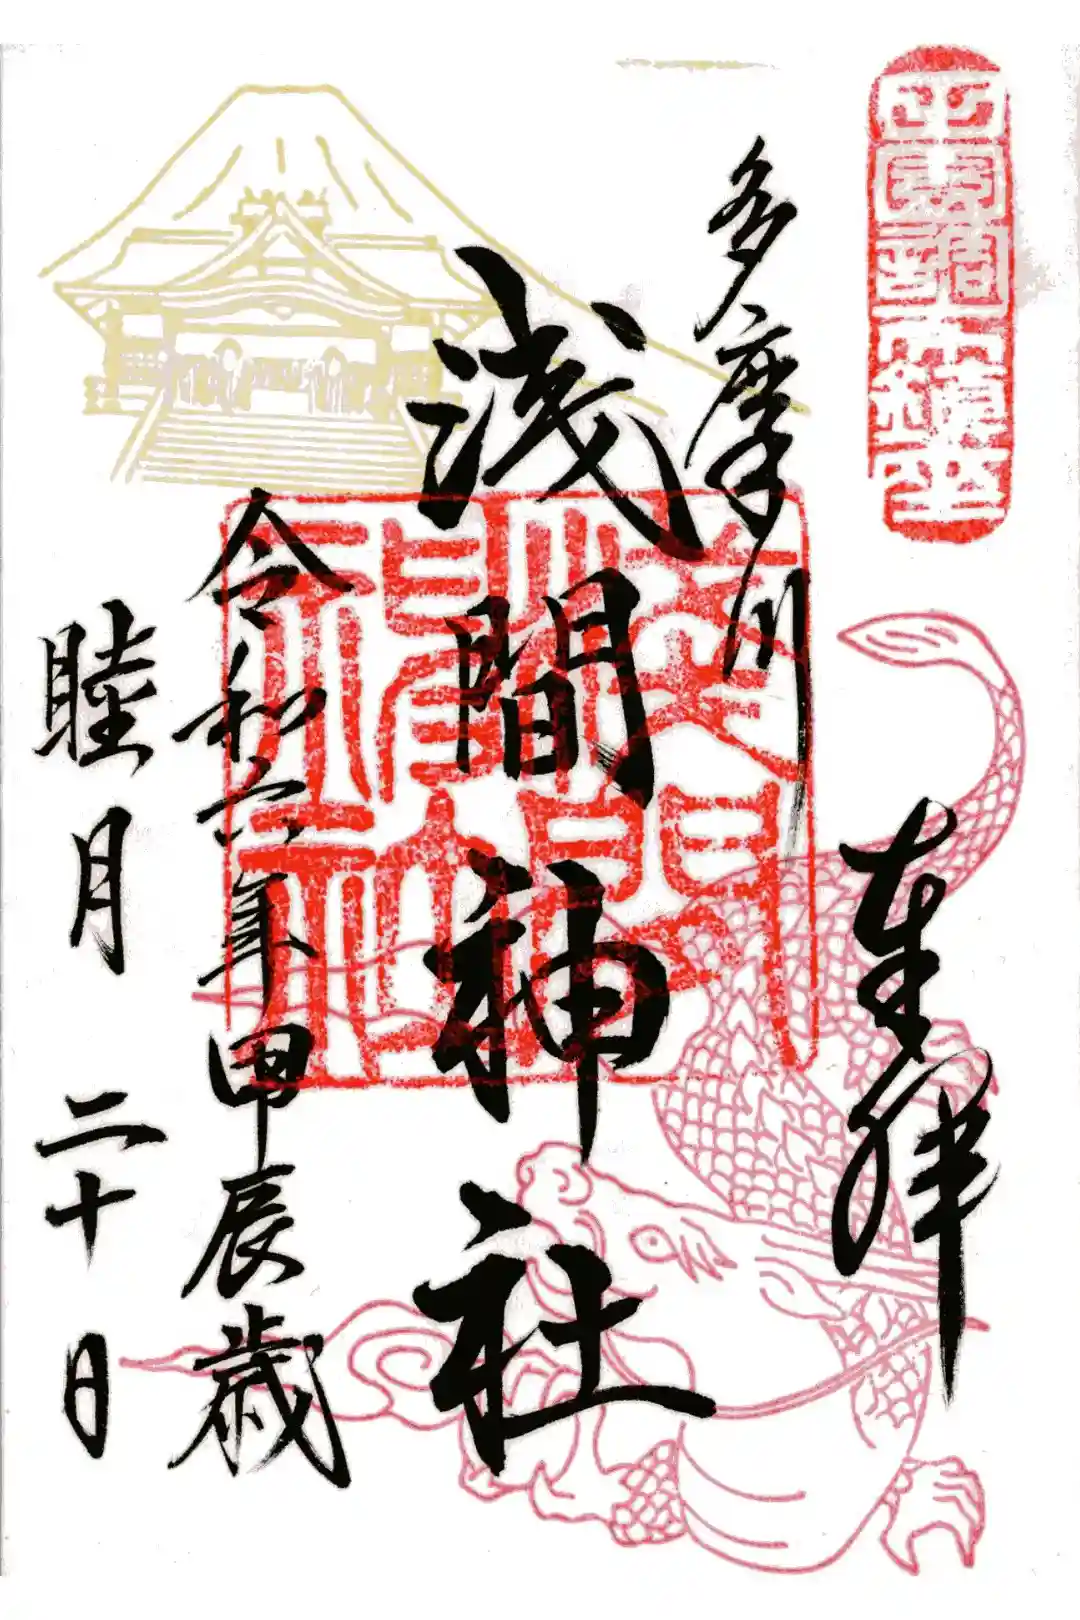 奉拝
多摩川
浅間神社
令和六年甲辰歳
睦月二十日
浅間神社